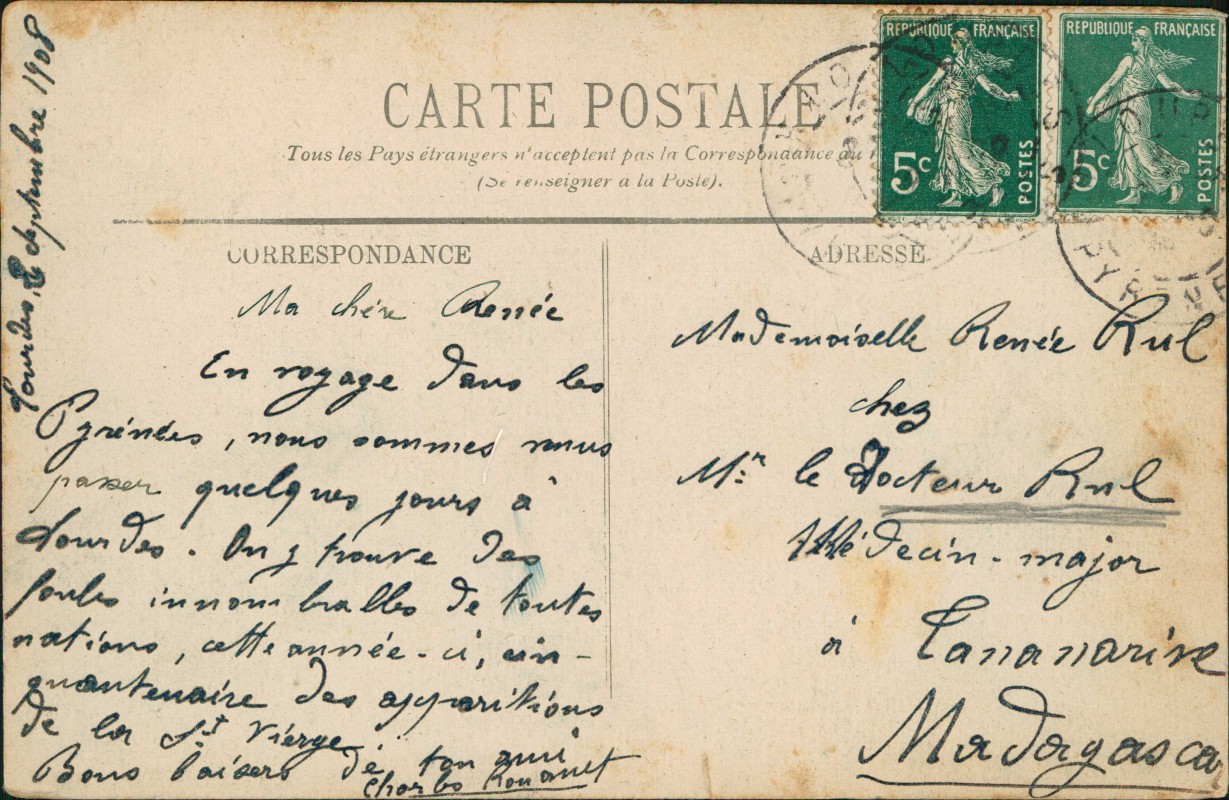 Lourdes, 2 Septembre 1908
RÉPUBLIQUE FRANÇAISE
5c
POSTES
RÉPUBLIQUE FRANÇAISE
5c
POSTES
CARTE POSTALE
Tous les Pays étrangers n'acceptent pas la Correspondance au
(Se renseigner à la Poste).
CORRESPONDANCE
Ma chère Renée
En voyage dans les
Pyrénées, nous sommes venus
passer quelques jours à
Lourdes. On y trouve des
foules innombrables de toutes
nations, cette année-ci, cin-
quantenaire des apparitions
de la St Vierge
Bons baisers de ton ami
Charles Rouanet
ADRESSE
Mademoiselle Renée Rul
chez
Mr le Docteur Rul
Médecin-major
à Tananarive
Madagasca